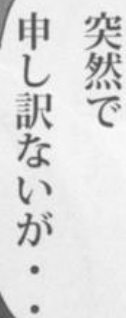 突然で
申し訳ないが・・